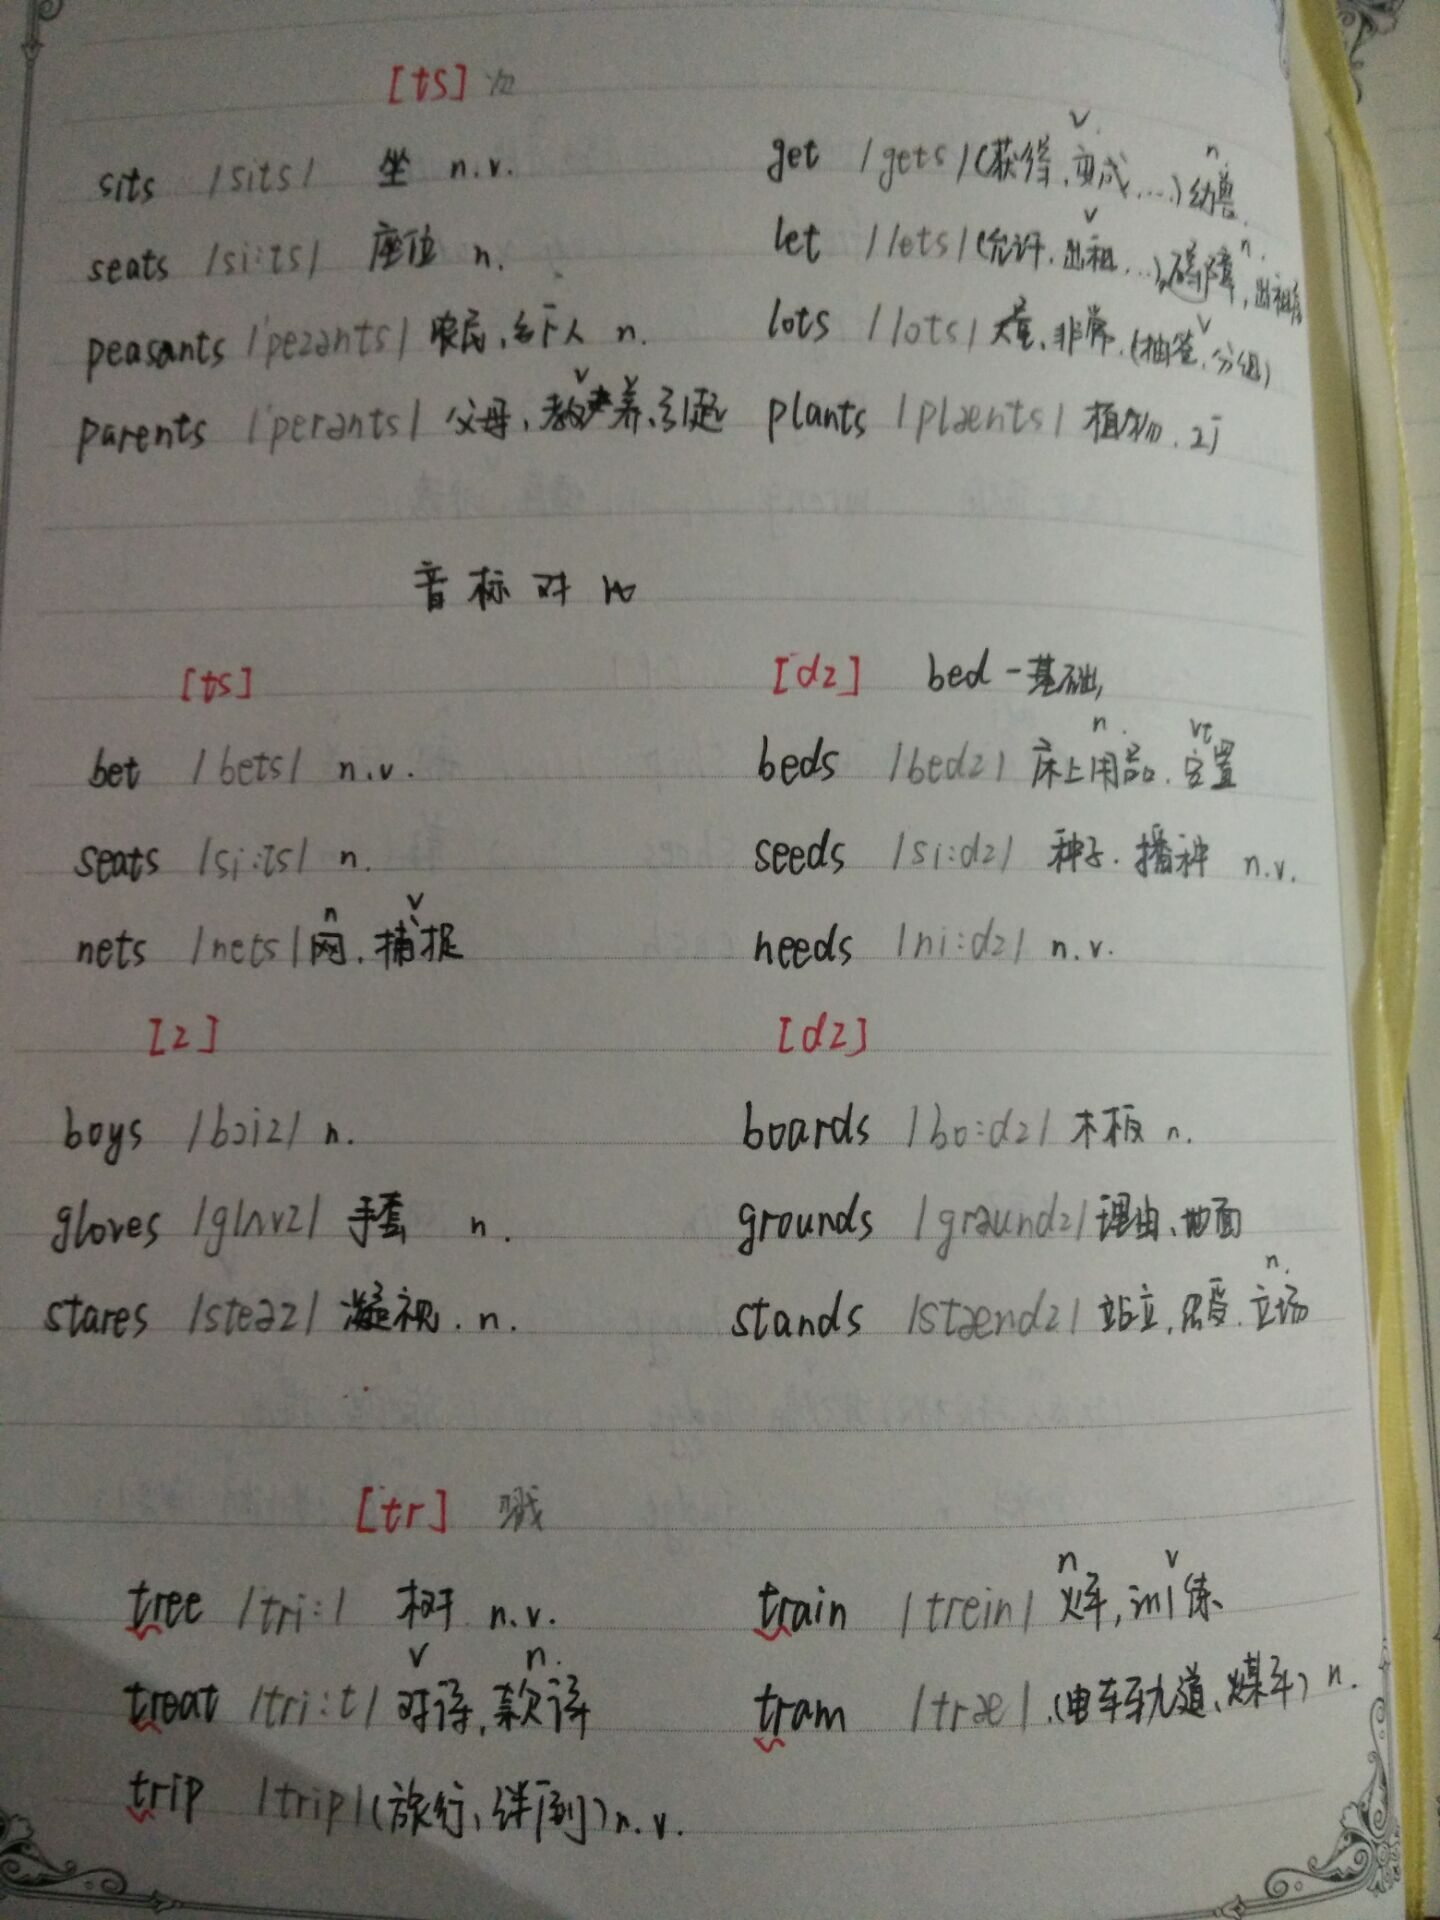 [ts] 次
sits /sits/ 坐 n.v.
get /gets/ (获得、变成、...) v. 幼兽 n.
seats /si:ts/ 座位 n.
let /lets/ (允许、出租...) v 障 n.
peasants /'pezənts/ 农民、乡下人 n.
lots /lots/ 大量、非常、(抽签、分组) v
parents /'perənts/ 父母、教养、引起 v v
plants /plænts/ 植物、
音标对比
[ts]
[dz] bed - 基础,
bet /bets/ n.v.
beds /bedz/ 床上用品、安置 n. vt
seats /si:ts/ n.
seeds /si:dz/ 种子、播种 n.v.
nets /nets/ 网、捕捉 n v
needs /ni:dz/ n.v.
[z]
[dz]
boys /bɔiz/ n.
boards /bo:dz/ 木板 n.
gloves /glʌvz/ 手套 n.
grounds /graundz/ 理由、地面
stares /steəz/ 凝视. n.
stands /stændz/ 站立、忍受、立场 n.
[tr] 戳
tree /tri:/ 树 n.v.
train /trein/ 火车,训练 n v
treat /tri:t/ 对待,款待 v n.
tram /træ/ (电车轨道、煤车) n.
trip /trip/ (旅行、绊倒) n.v.